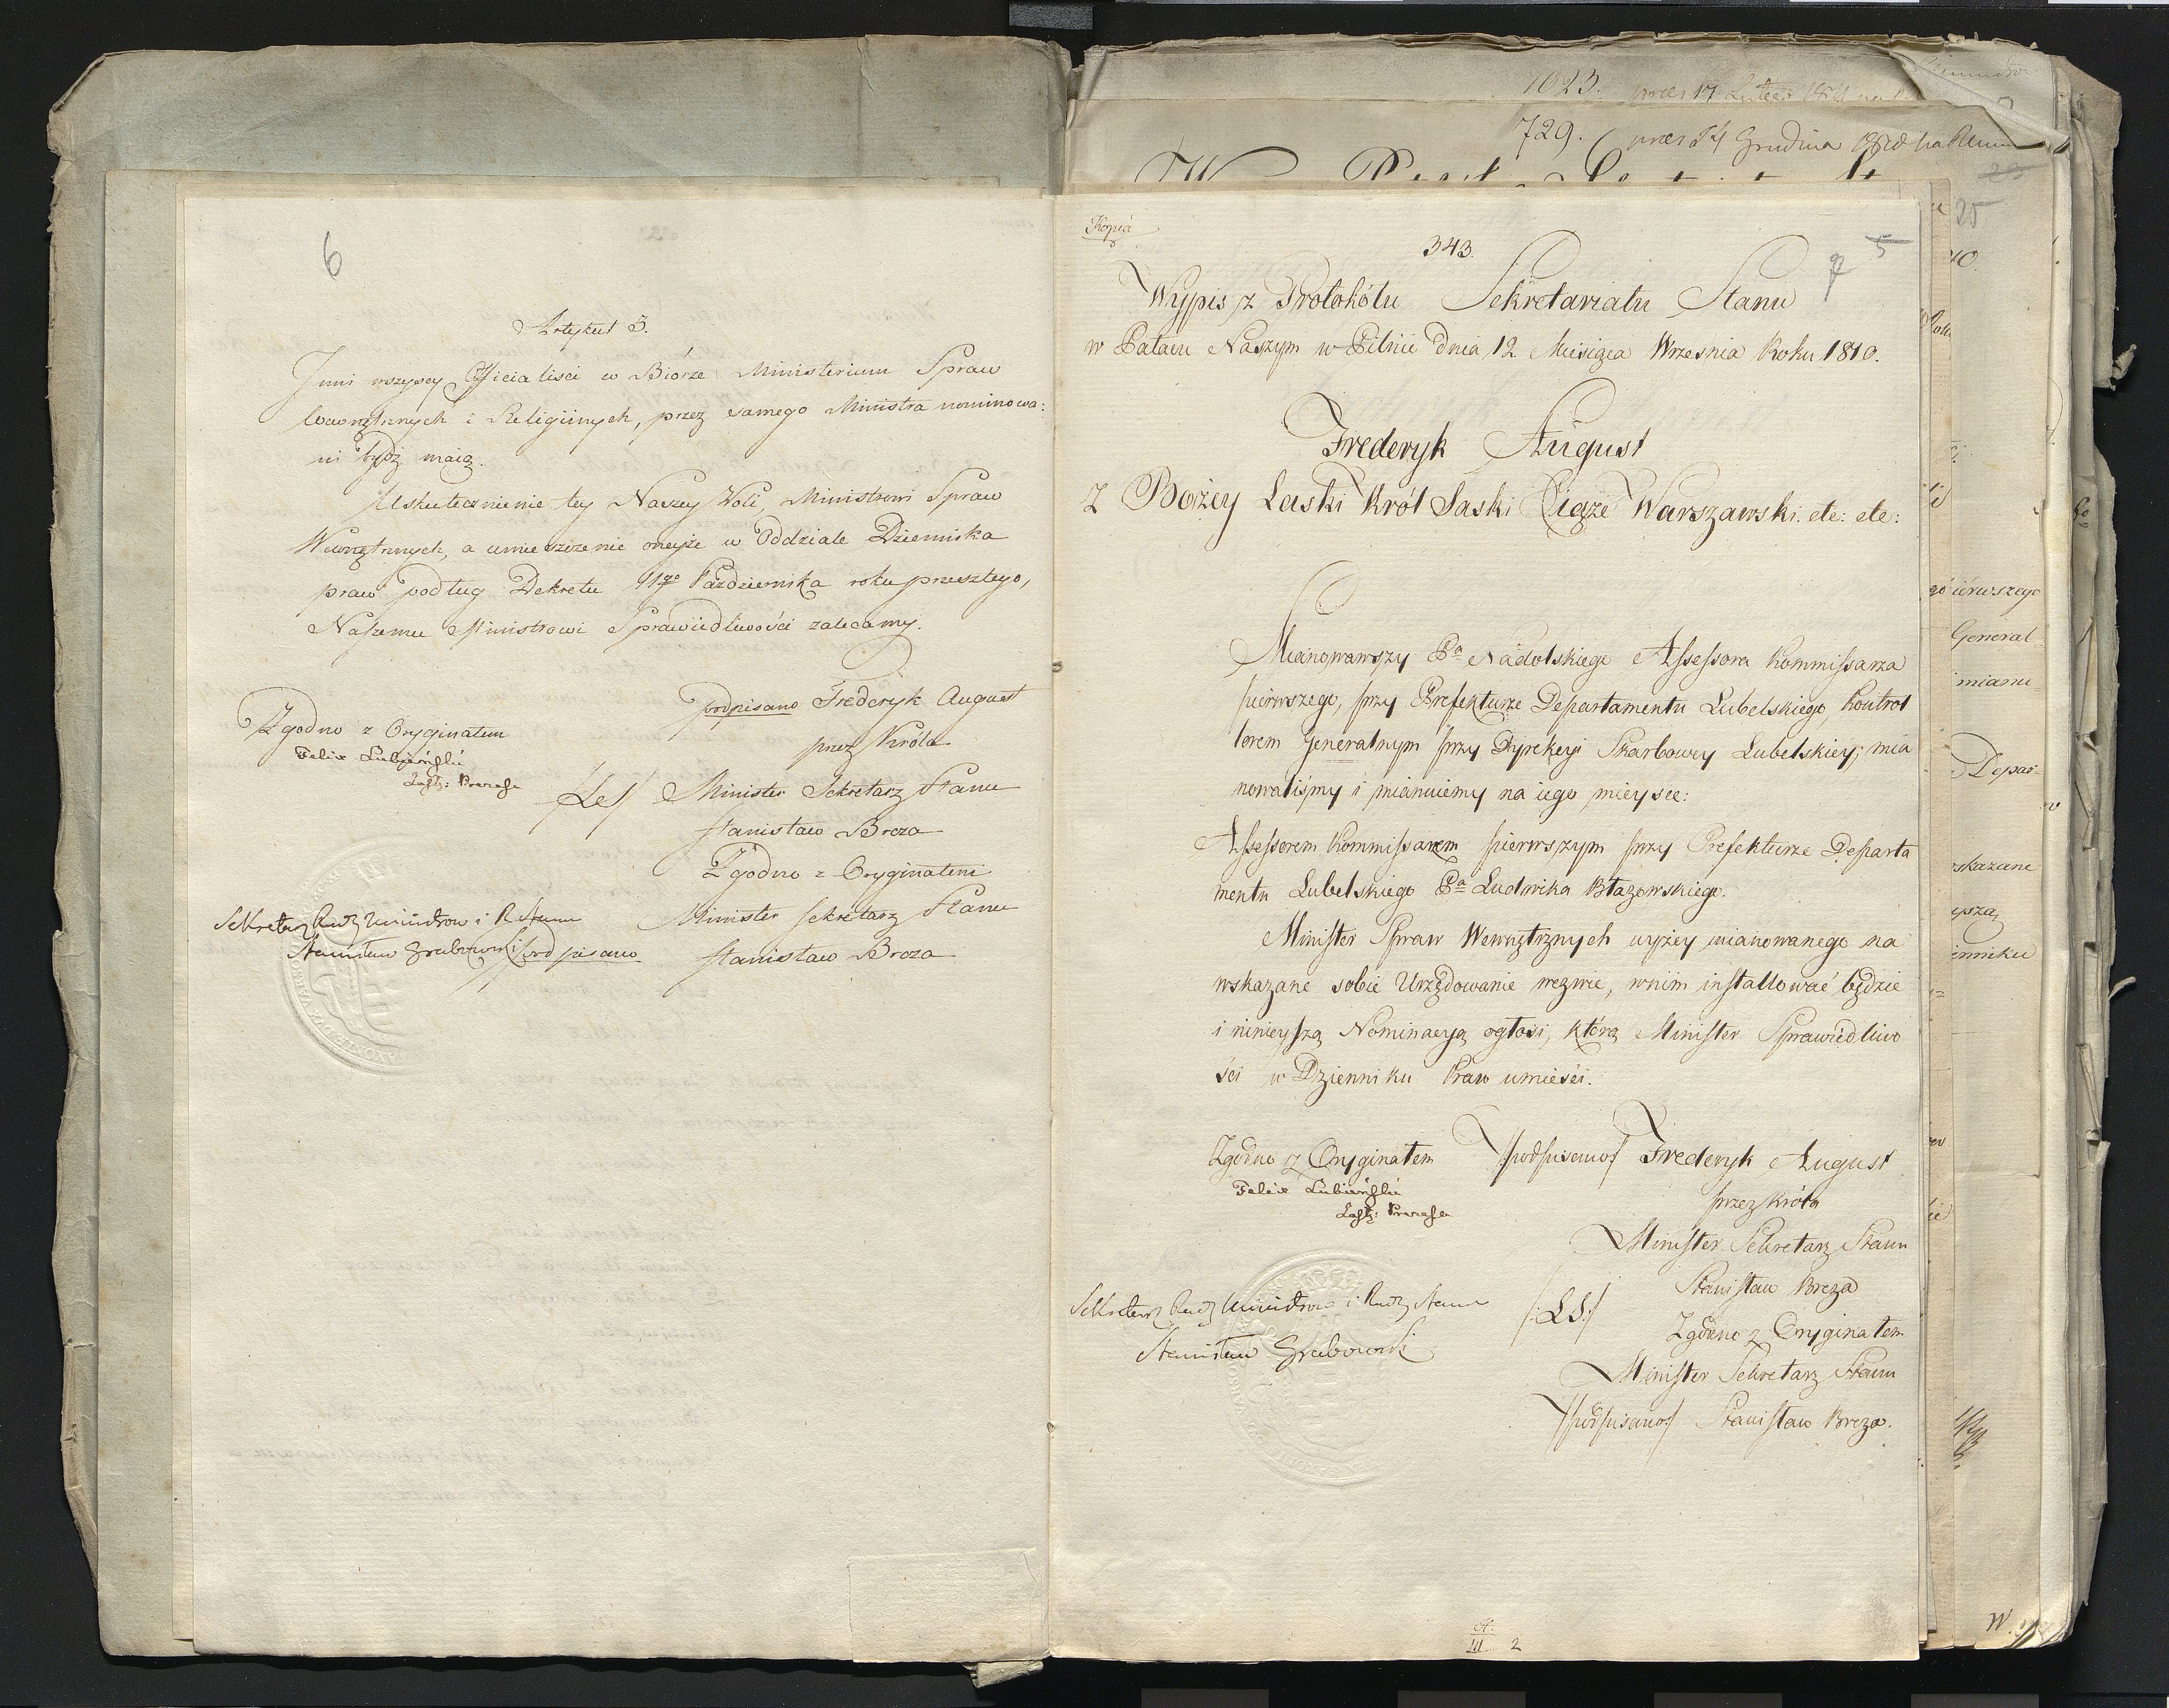 6
Artykuł 3.
Inni wszyscy Officialisci w Biórze Ministerium Spraw
Wewnętrznych i Religiinych, przez samego Ministra nominowa:
ni bydź maią.
Uskutecznienie tey Naszey Woli, Ministrowi Spraw
Wewnętrznych, a umieszczenie oneyże w Oddziale Dziennika
praw podług Dekretu 11go Października roku przeszłego,
Naszemu Ministrowi Sprawiedliwości zalecamy.
podpisano Frederyk August
przez Króla
Minister Sekretarz Stanu
Stanisław Breza
Zgodno z Oryginałem
Minister Sekretarz Stanu
podpisano Stanisław Breza
Zgodno z Oryginałem
Felix Łubieński
Zast: Prezesa
Sekretarz Rady Ministrow i R Stanu
Stanisław Grabowski
Kopia
343.
7 5
Wypis z Protokółu Sekretariatu Stanu
w Pałacu Naszym w Pilnic Dnia 12 Miesiąca Września Roku 1810.
Frederyk August
Z Bożey Łaski Król Saski Xiąże Warszawski. etc: etc:
Mianowawszy Pa Nadolskiego Assessora Kommissarza
pierwszego, przy Prefekturze Departamentu Lubelskiego, Kontrol
lorem Generalnym przy Dyrekcyi Skarbowey Lubelskiey; mia
nowaliśmy i mianuiemy na iego mieysce:
Assessorem Kommissarzem pierwszym przy Prefekturze Departa
mentu Lubelskiego Pa Ludwika Błażowskiego.
Minister Spraw Wewnętrznych wyżey mianowanego na
wskazane sobie Urzędowanie wezwie, w nim installować będzie
i ninieyszą Nominacyą ogłosi, którą Minister Sprawiedliwo
ści w Dzienniku Praw umieści.
/podpisano/ Frederyk August
przez Króla
Minister Sekretarz Stanu
Stanisław Breza
/:L.S:/
Zgodno z Oryginałem
Minister Sekretarz Stanu
/podpisano/ Stanisław Breza.
Zgodno z Oryginałem
Felix Łubieński
Zast: Prezesa
Sekretarz Rady Ministrow i Rady Stanu
Stanisław Grabowski
III. 2
1023.
729.
25